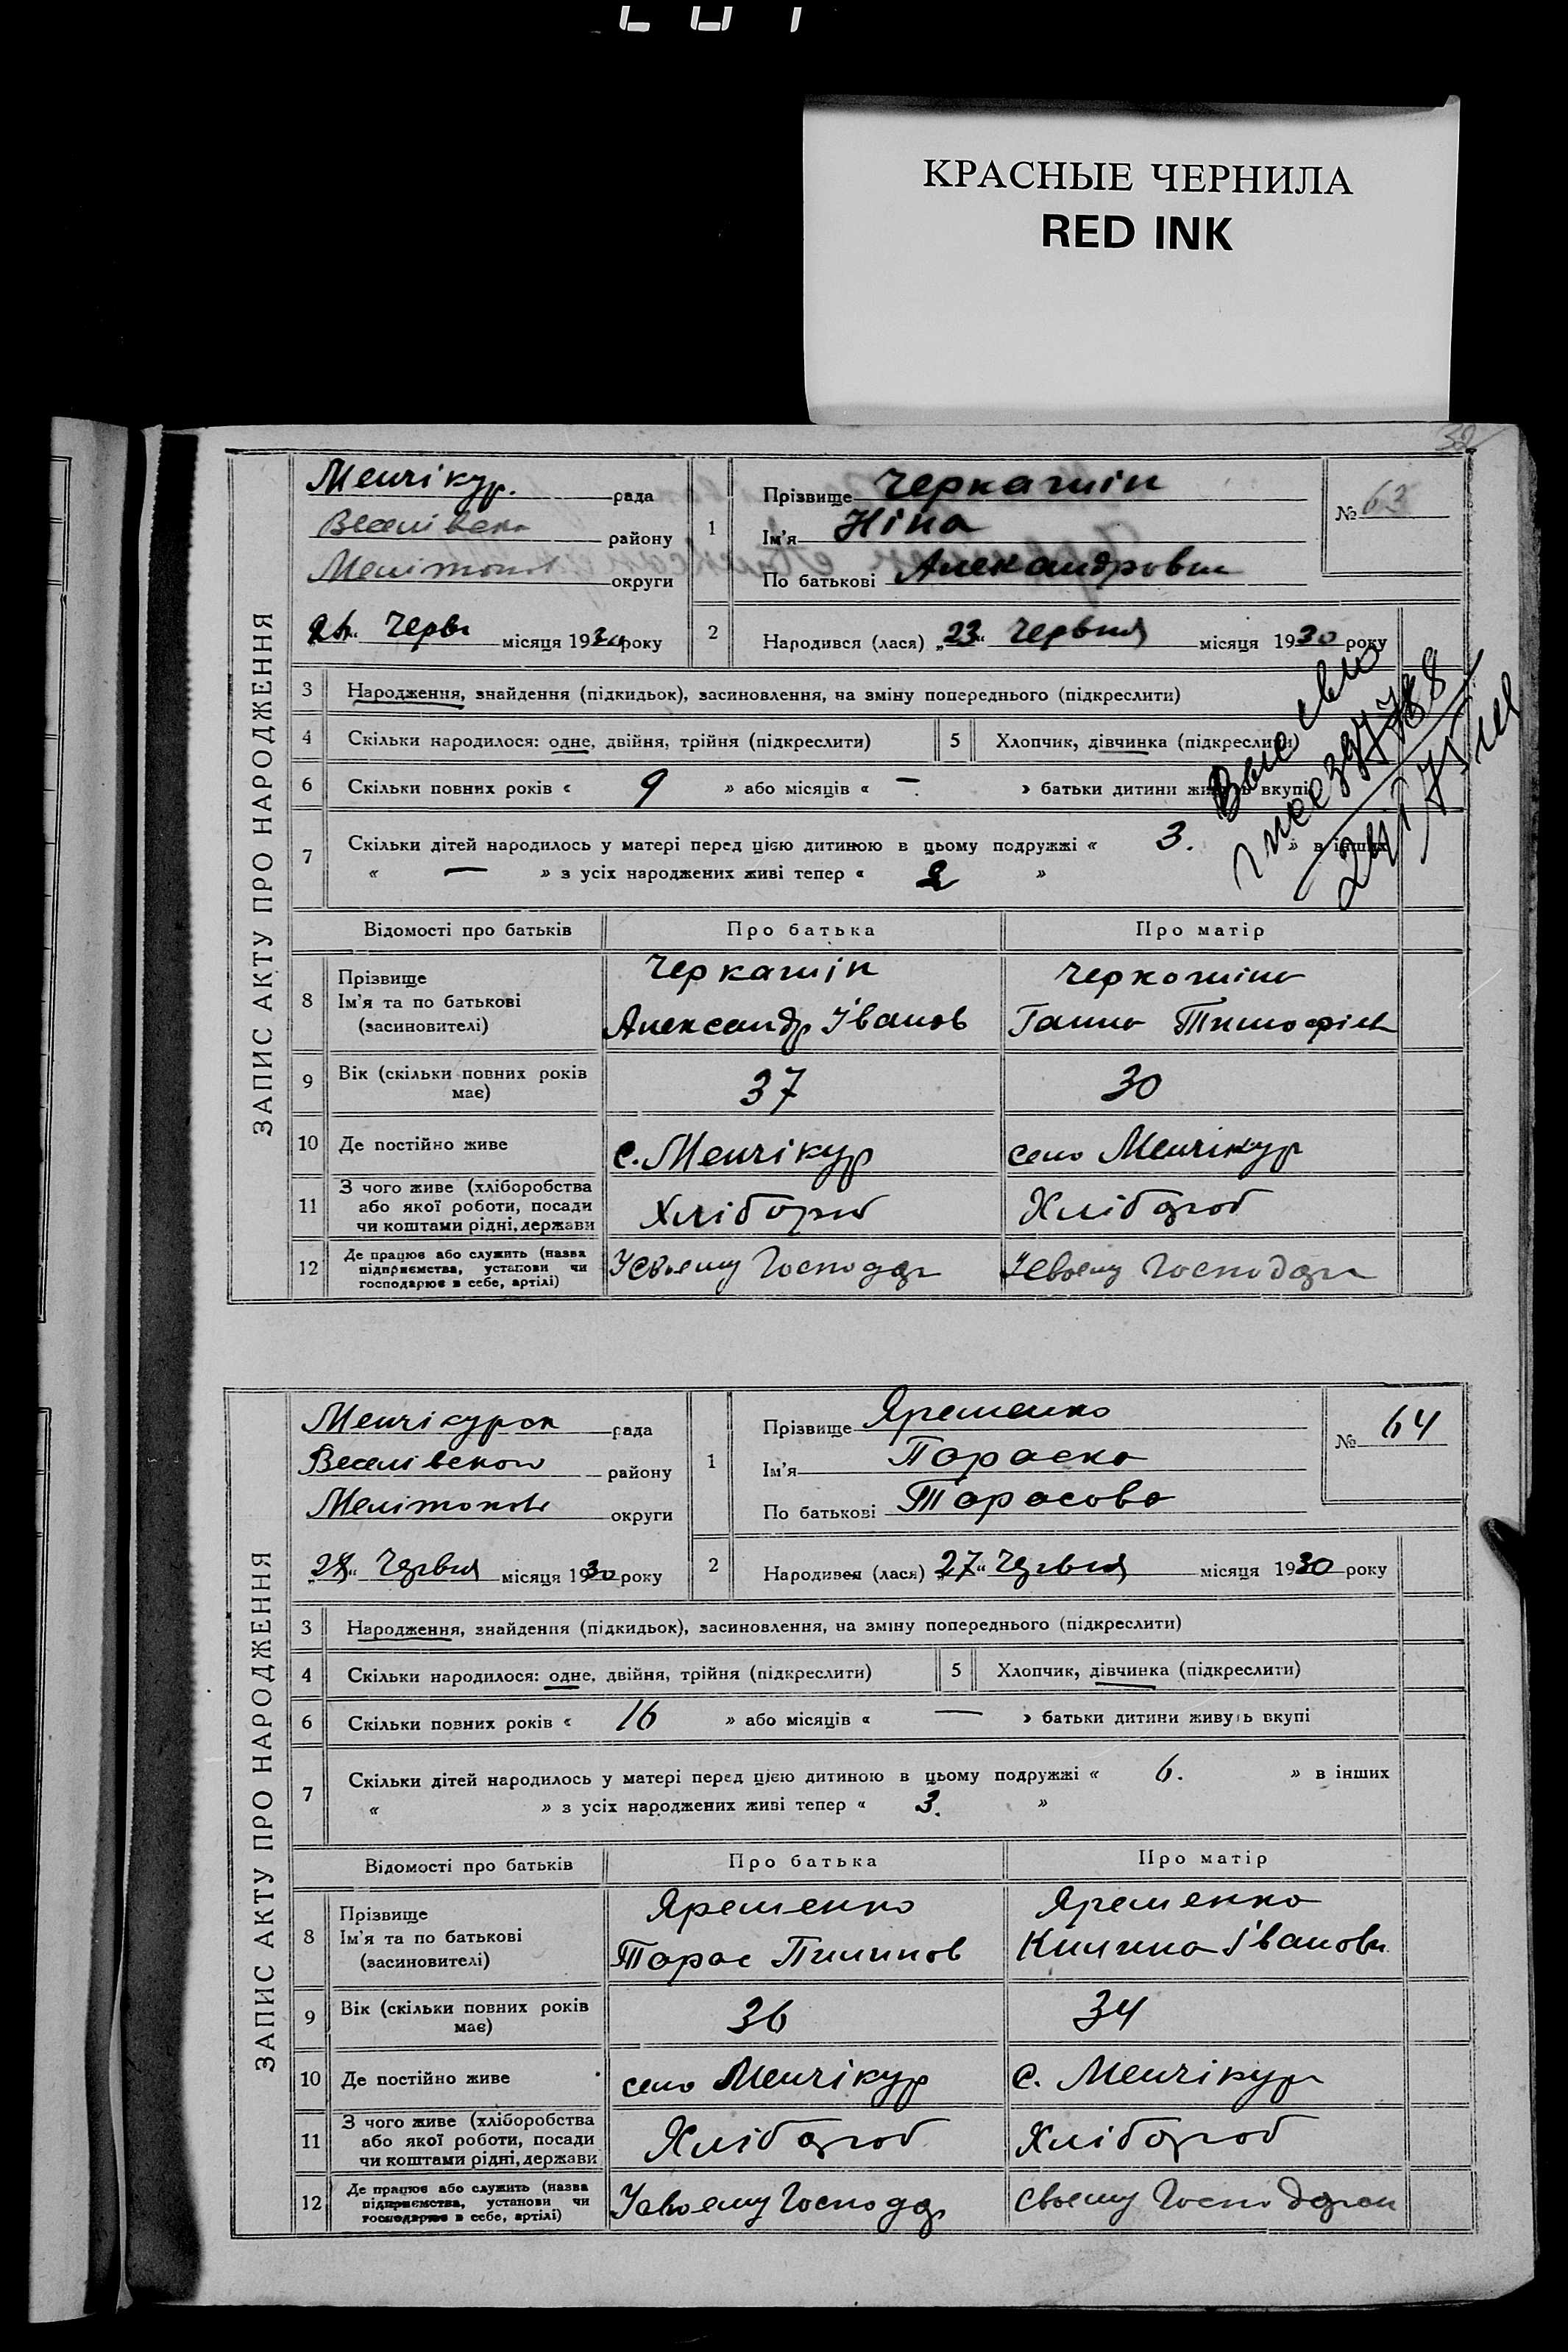 КРАСНЫЕ ЧЕРНИЛА
RED INK
32
ЗАПИС АКТУ ПРО НАРОДЖЕННЯ
Менчікур. рада
Веселівськ району
Мелітополь округи
Червн місяця 1930 року
1
Прізвище Черкашін
Ім'я Ніна
По батькові Александровн
№ 63
2 Народився (лася) „23“ Червня місяця 1930 року
3 Народження, знайдення (підкидьок), засиновлення, на зміну попереднього (підкреслити)
4 Скільки народилося: одне, двійня, трійня (підкреслити)
5 Хлопчик, дівчинка (підкреслити)
6 Скільки повних років « 9 » або місяців « — » батьки дитини живуть вкупі
7 Скільки дітей народилось у матері перед цією дитиною в цьому подружжі « 3. » в інших
« — » з усіх народжених живі тепер « 2 »
Відомості про батьків Про батька Про матір
8 Прізвище
Ім'я та по батькові
(засиновителі)
Черкашін
Александр Іванов
Черкашіна
Ганна Тимофієв
9 Вік (скільки повних років має) 37 30
10 Де постійно живе с. Менчікур село Менчікур
11 З чого живе (хліборобства
або якої роботи, посади
чи коштами рідні, держави
Хлібороб Хлібороб
12 Де працює або служить (назва
підприємства, установи чи
господарює в себе, артілі)
Усвоему Господар Усвоему Господарн
ЗАПИС АКТУ ПРО НАРОДЖЕННЯ
Менчікурск рада
Веселівською району
Мелітополь округи
„28“ Червня місяця 1930 року
1
Прізвище Яременко
Ім'я Параска
По батькові Тарасова
№ 64
2 Народився (лася) „27“ Червня місяця 1930 року
3 Народження, знайдення (підкидьок), засиновлення, на зміну попереднього (підкреслити)
4 Скільки народилося: одне, двійня, трійня (підкреслити)
5 Хлопчик, дівчинка (підкреслити)
6 Скільки повних років « 16 » або місяців « — » батьки дитини живуть вкупі
7 Скільки дітей народилось у матері перед цією дитиною в цьому подружжі « 6. » в інших
« » з усіх народжених живі тепер « 3. »
Відомості про батьків Про батька Про матір
8 Прізвище
Ім'я та по батькові
(засиновителі)
Яременко
Тарас Пилипов
Яременко
Килина Івановн
9 Вік (скільки повних років має) 36 34
10 Де постійно живе село Менчікур с. Менчікур
11 З чого живе (хліборобства
або якої роботи, посади
чи коштами рідні, держави
Хлібороб Хлібороб
12 Де працює або служить (назва
підприємства, установи чи
господарює в себе, артілі)
Усвоему Господар Своему Господарсн